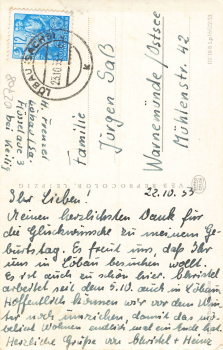 LÖBAU (SACHS)
H. Frenzel
Löbau
Familie
Jürgen Saß
Warnemünde/Ostsee
Mühlenstr. 42
22.10.55
Ihr Lieben!
Meinen herzlichsten Dank für
die Glückwünsche zu meinem Ge-
burtstag. Es freut uns, daß Ihr
uns in Löbau besuchen wollt.
Es ist auch zu schön hier. Christel
arbeitet seit dem 5.10. auch in Löbau
Hoffentlich können wir vor dem Win-
ter noch umziehen, damit das mö-
beliert Wohnen endlich mal ein Ende hat.
Herzliche Grüße von Christel + Heinz